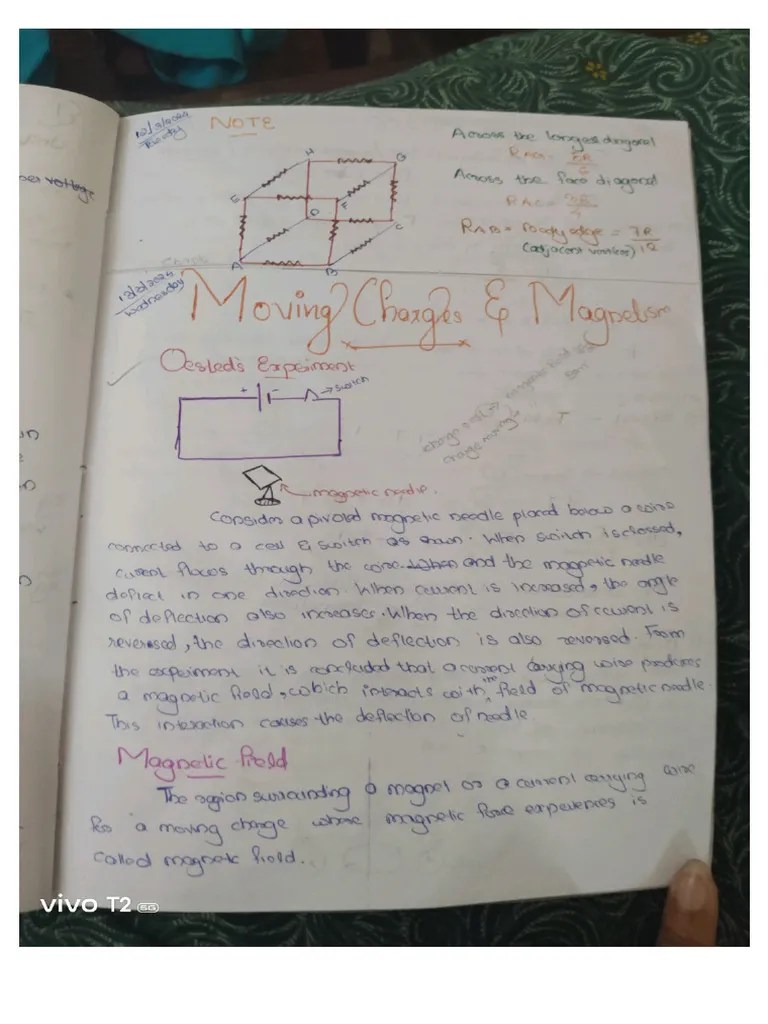 per voltage
NOTE
Across the longest diagonal
RAG = 5R/6
Across the face diagonal
RAC =
RAB = Body edge = 7R/12
(adjacent vertices)
H
G
E
F
D
C
A
B
Wednesday
Moving Charges & Magnetism
Oested's Expeiment
+ -
→ switch
magnetic needle.
Consider a pivoted magnetic needle placed below a wire
connected to a cell & switch as shown. When switch is closed,
current flows through the wire. and the magnetic needle
deflect in one direction. When current is increased, the angle
of deflection also increases. When the direction of current is
reversed, the direction of deflection is also reversed. From
the experiment it is concluded that a current carrying wire produces
a magnetic field, which interacts with the field of magnetic needle.
This interaction causes the deflection of needle
Magnetic field
The region surrounding a magnet or a current carrying wire
a moving charge where magnetic force experiences is
called magnetic field.
vivo T2 5G